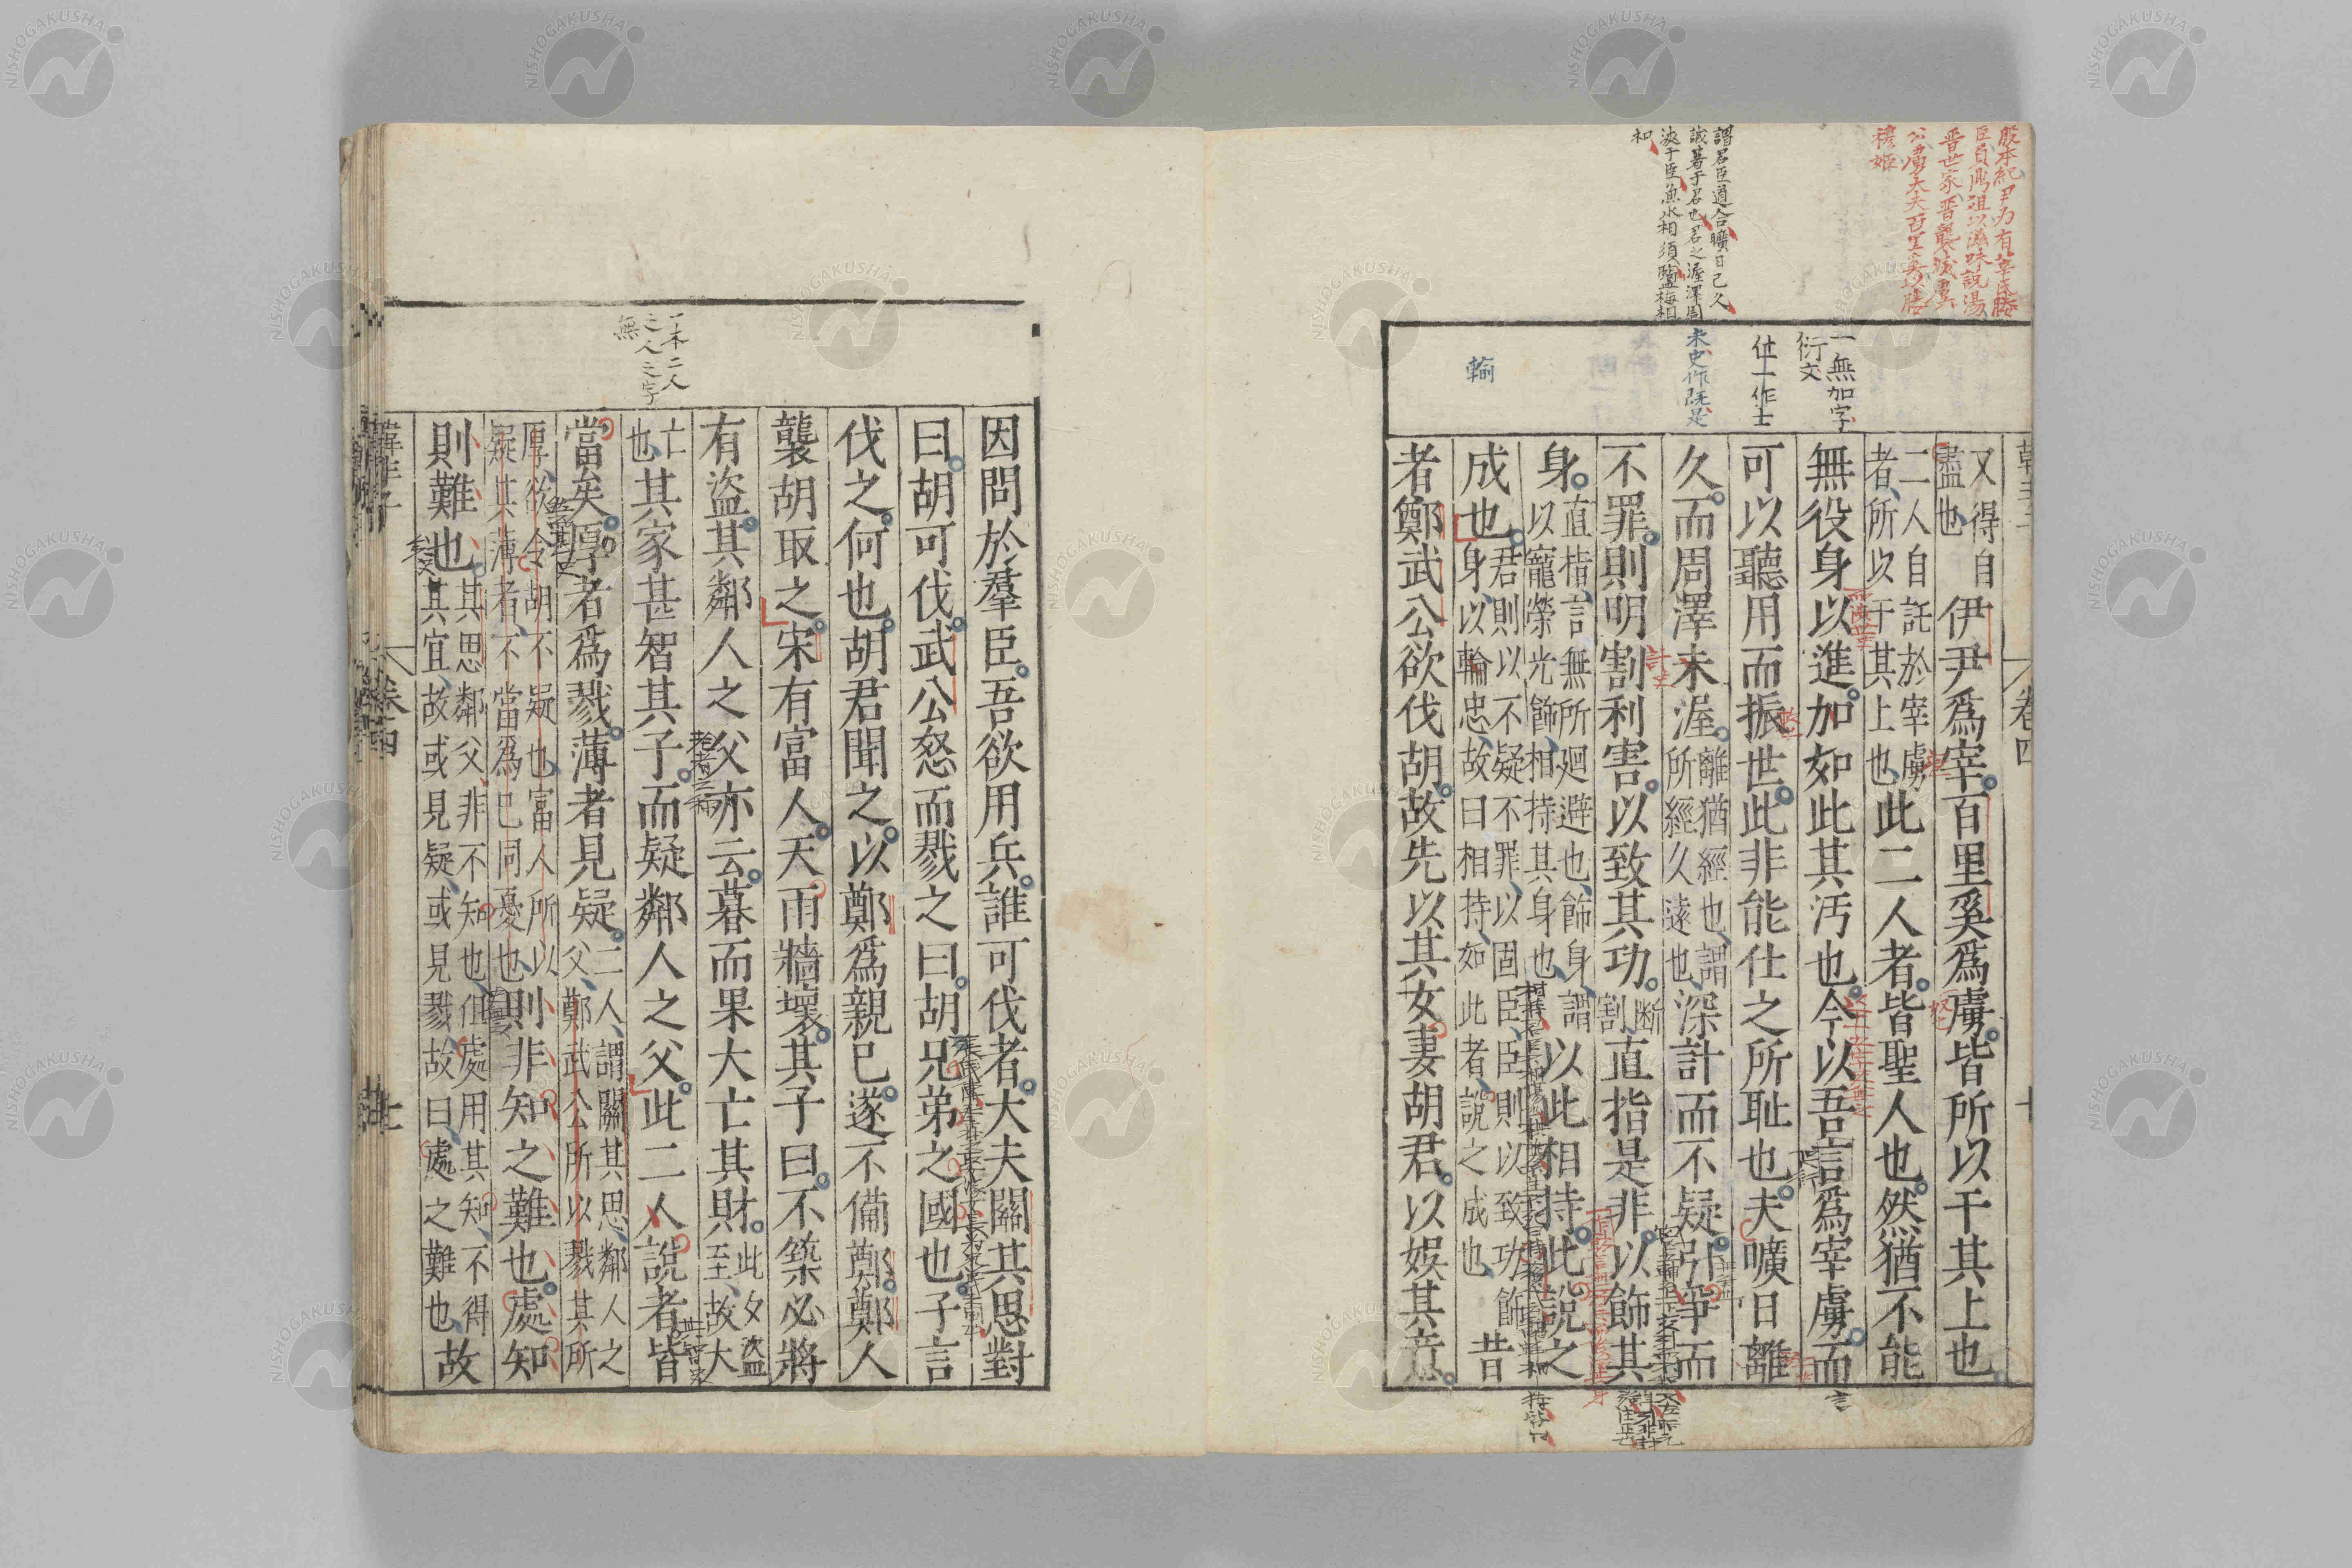 殷本紀尹為有莘氏媵
臣負鼎俎以滋味說湯
晉世家晉襲滅虞
公虜大夫百里奚以媵
穆姬
謂君臣道合曠日已久
誠著于君也君之渥澤周
浹于臣魚水相須鹽梅相
和
一無加字
衍文
仕一作士
未史作既是
輸
卷四
又得自
盡也
伊尹爲宰百里奚爲虜皆所以干其上也
二人自託於宰虜
者所以干其上也
此二人者皆聖人也然猶不能
無役身以進加如此其汚也今以吾言爲宰虜而
可以聽用而振世此非能仕之所耻也夫曠日離
久而周澤未渥
離猶經也謂
所經久遠也
深計而不疑引爭而
不罪則明割利害以致其功
断
割
直指是非以飾其
身
直指言無所廻避也飾身謂
以寵榮光飾相持其身也
以此相持此說之
成也
君則以不疑不罪以固臣臣則以致功飾
身以輪忠故曰相持如此者說之成也
昔
者鄭武公欲伐胡故先以其女妻胡君以娛其意
一本二人
之人之字
無
因問於羣臣吾欲用兵誰可伐者大夫關其思對
曰胡可伐武公怒而戮之曰胡兄弟之國也子言
伐之何也胡君聞之以鄭爲親已遂不備鄭鄭人
襲胡取之宋有富人天雨牆壞其子曰不築必將
有盜其鄰人之父亦云暮而果大亡其財
此夕盜
至故大
亡
也
其家甚智其子而疑鄰人之父此二人說者皆
當矣厚者爲戮薄者見疑
二人謂關其思鄰人之
父鄭武公所以戮其所
厚欲令胡不疑也富人所以
疑其薄者不當爲已同憂也
則非知之難也處知
則難也
其思鄰父非不知也但處用其知不得
其宜故或見疑或見戮故曰處之難也
故
韓非子
卷四
七
NISHOGAKUSHA